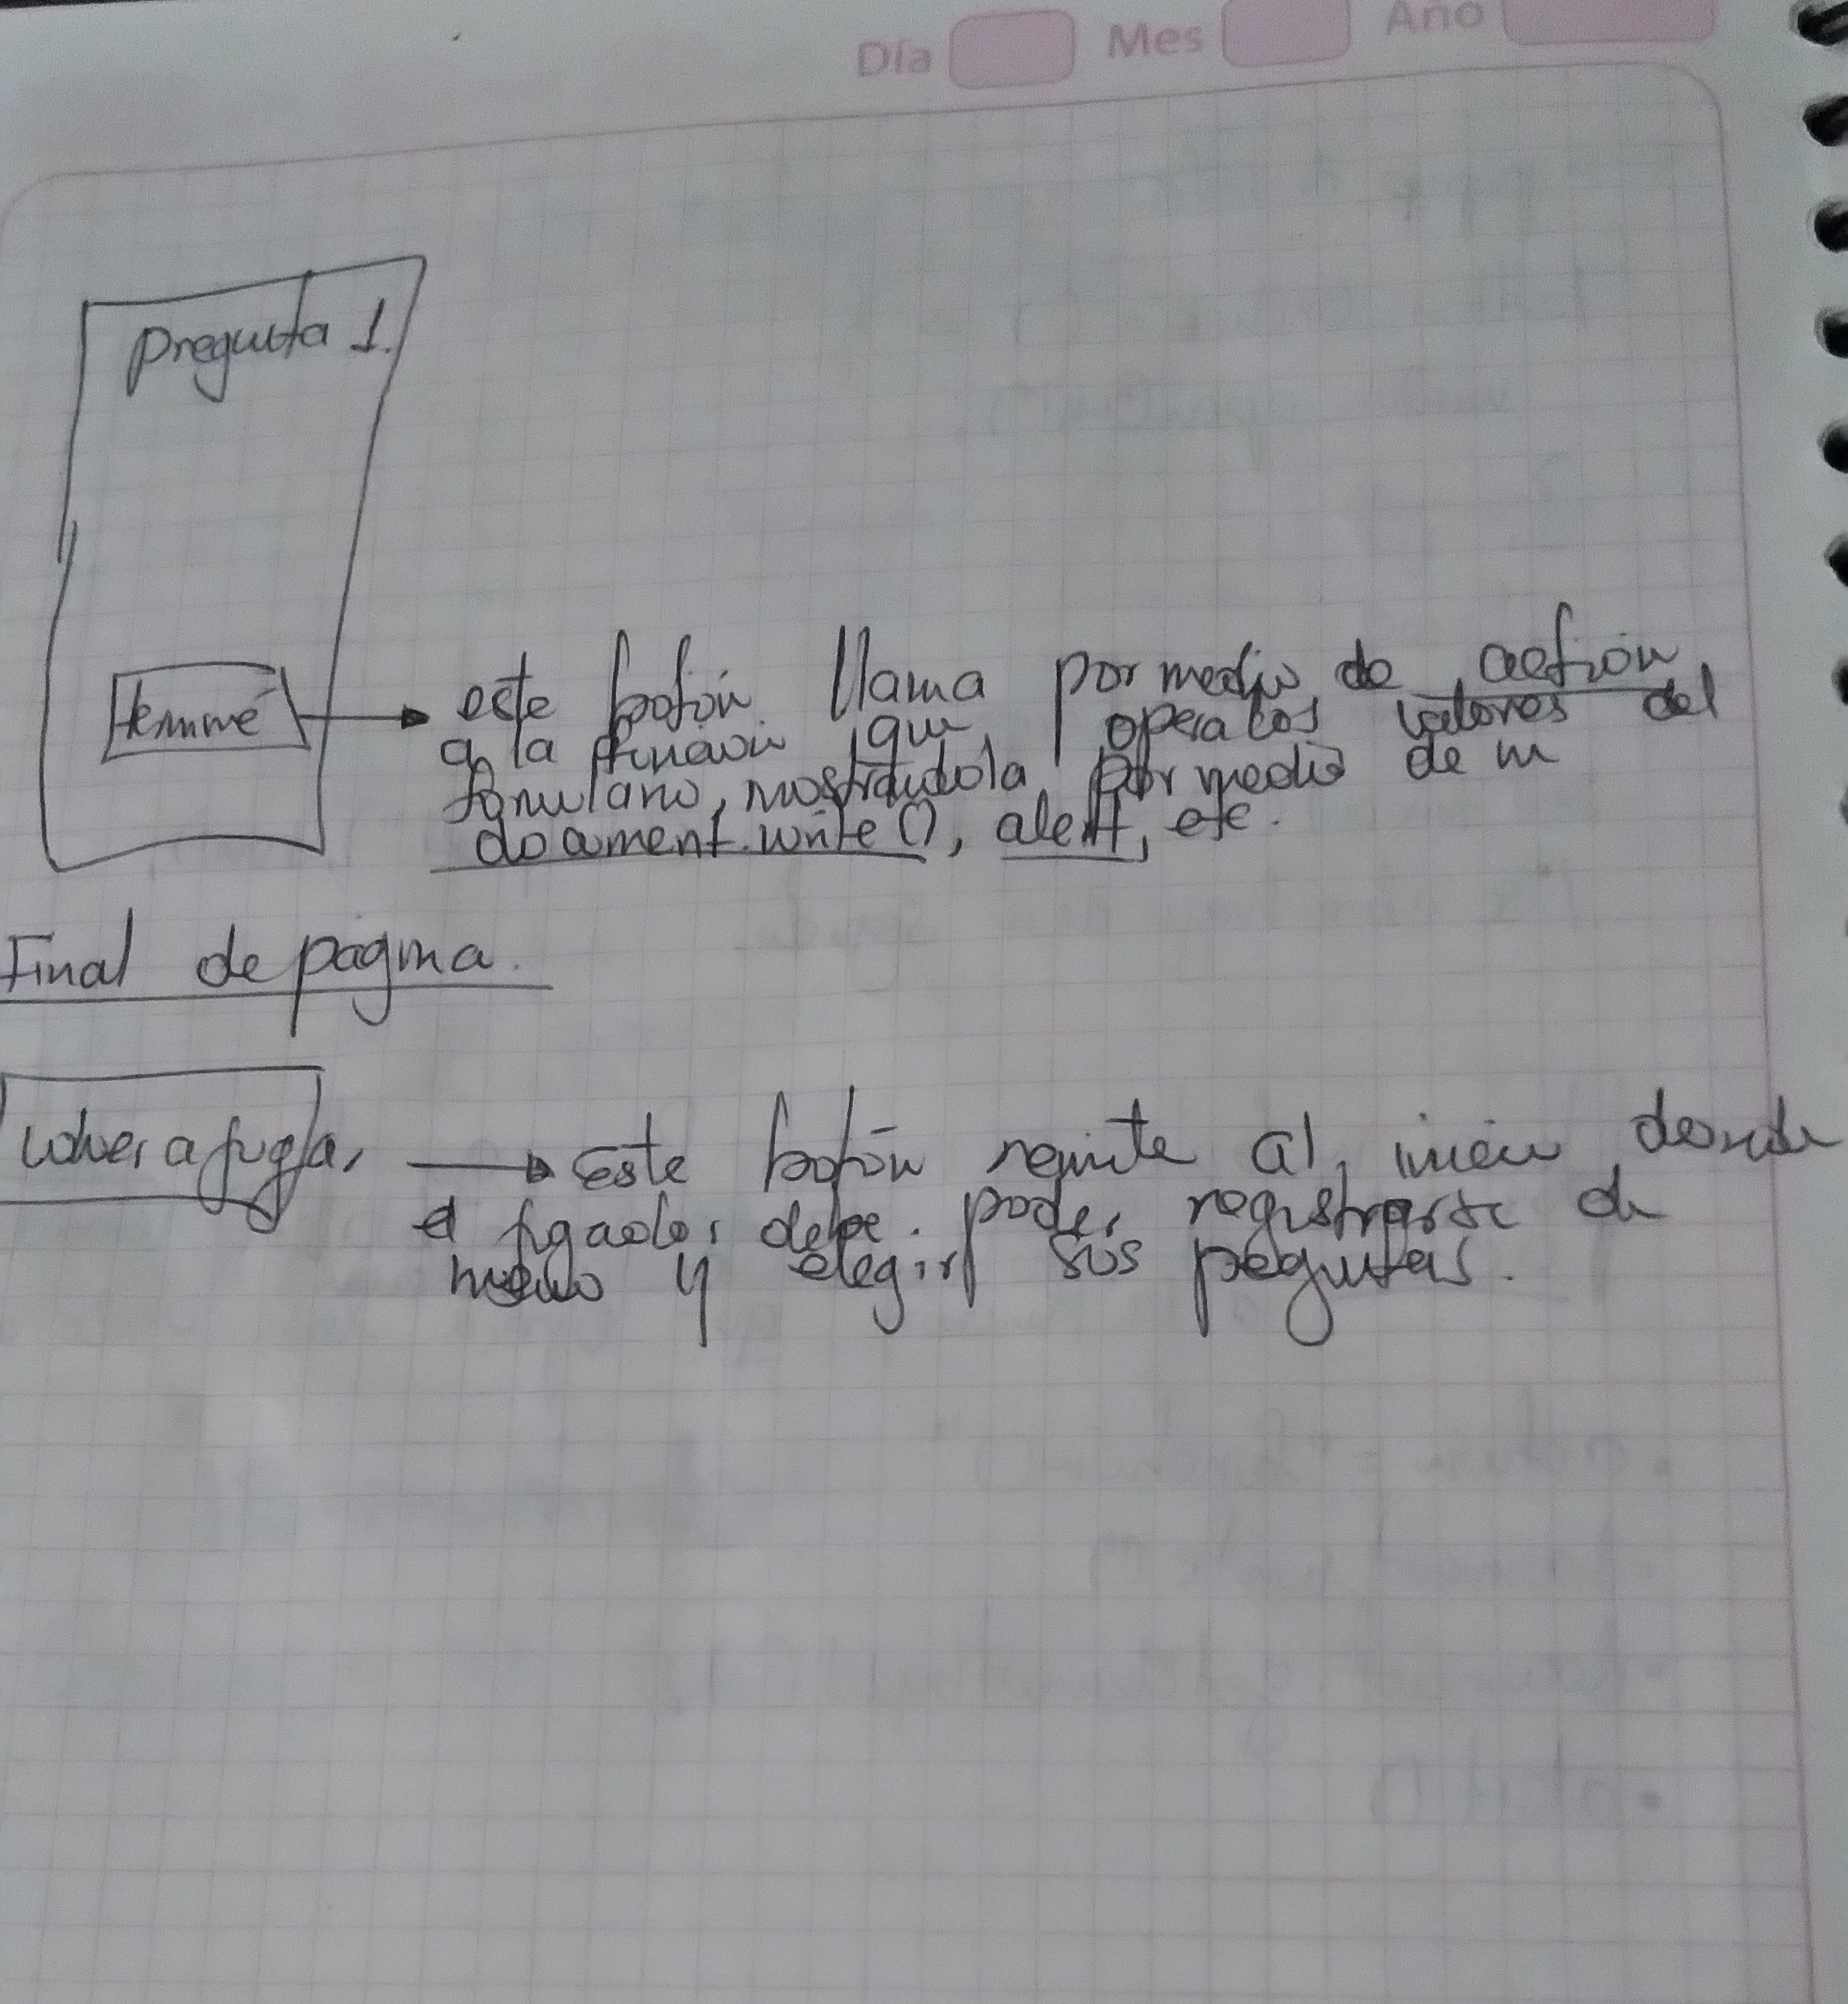 Día Mes Año
Pregunta 1.
terminé
este botón llama por medio de action
a la función que opera los valores del
formulario, mostrándola por medio de un
document.write(), alert, etc.
Final de página.
Volver a jugar
Este botón remite al inicio donde
el jugador debe poder registrarse de
nuevo y elegir sus preguntas.